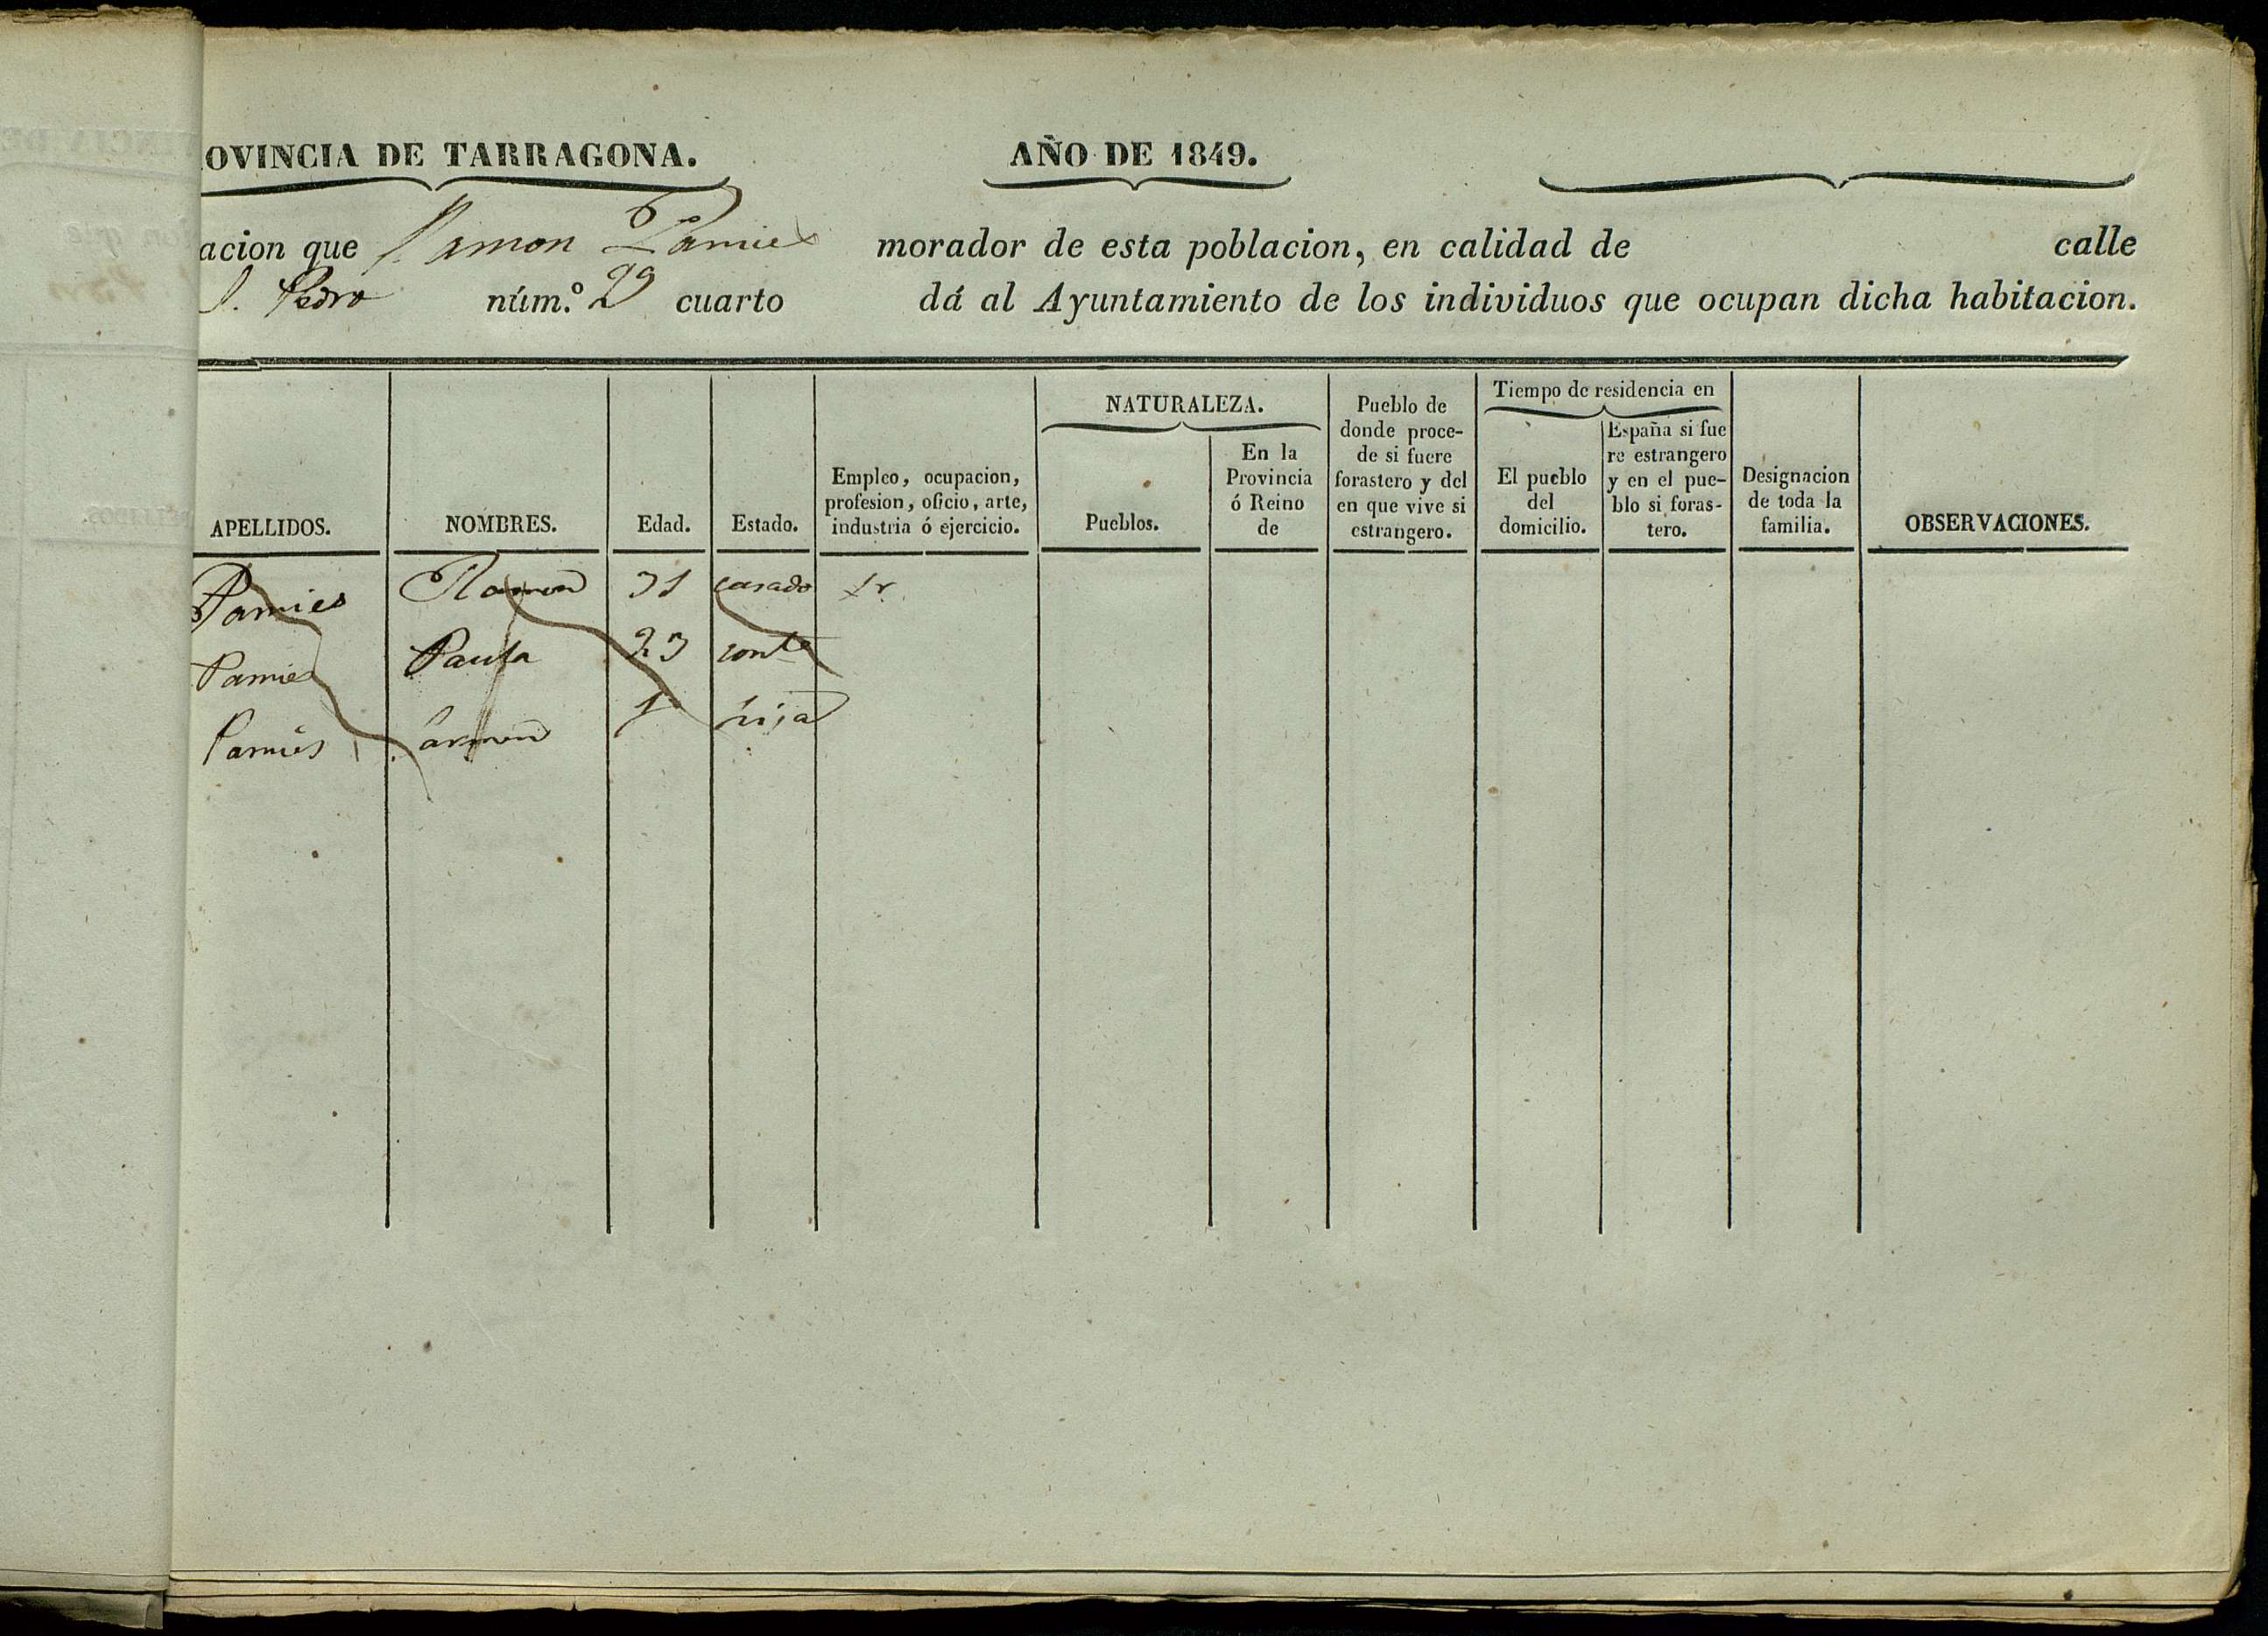 OVINCIA DE TARRAGONA. AÑO DE 1849.
acion que Ramon Pamies morador de esta poblacion, en calidad de calle
S. Pedro núm.º 29 cuarto dá al Ayuntamiento de los individuos que ocupan dicha habitacion.
APELLIDOS. NOMBRES. Edad. Estado. Empleo, ocupacion, profesion, oficio, arte, industria ó ejercicio. NATURALEZA. Pueblos. En la Provincia ó Reino de Pueblo de donde proce- de si fuere forastero y del en que vive si estrangero. Tiempo de residencia en El pueblo del domicilio. España si fue re estrangero y en el pue- blo si foras- tero. Designacion de toda la familia. OBSERVACIONES.
Pamies Ramon 31 casado
Pamies Paula 23
Pamies Carmen 1 hija